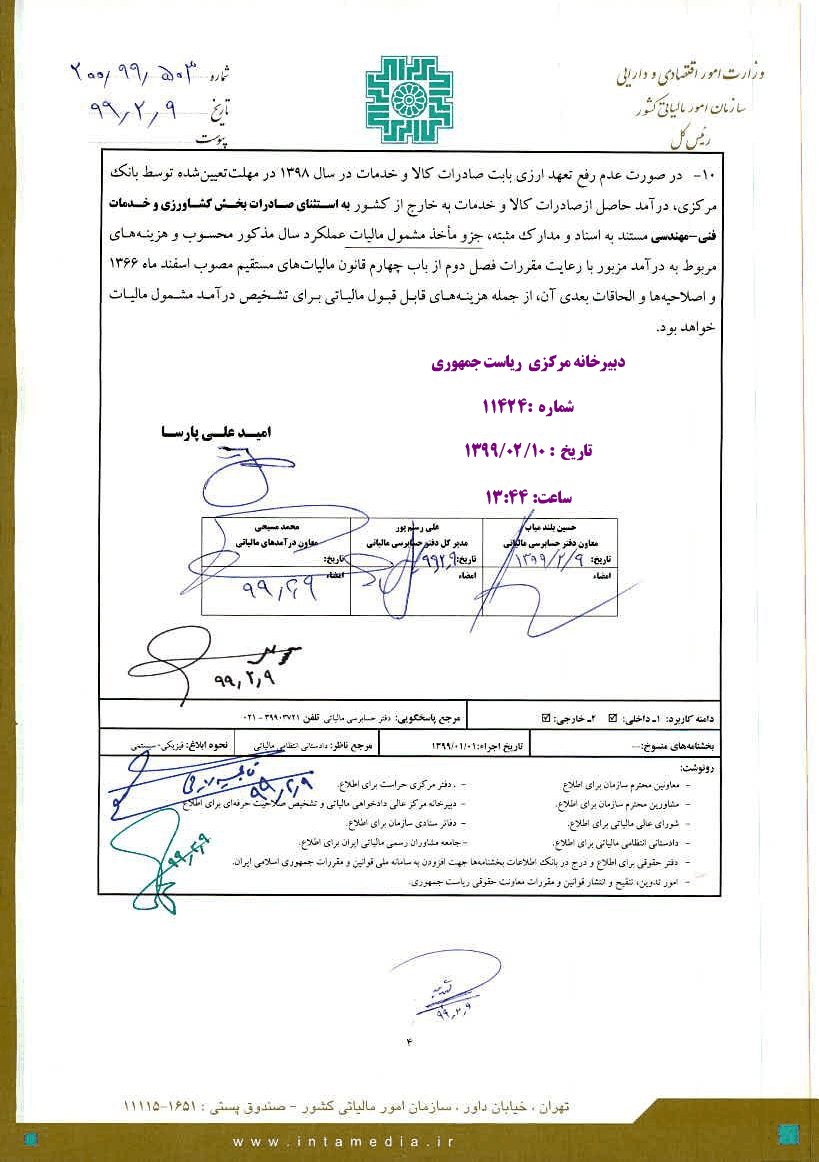 وزارت امور اقتصادی و دارایی
سازمان امور مالیاتی کشور
رئیس کل
شماره ۲۰۰/۹۹/۵۰۳
تاریخ ۹۹/۲/۹
پیوست
۱۰- در صورت عدم رفع تعهد ارزی بابت صادرات کالا و خدمات در سال ۱۳۹۸ در مهلت تعیین‌شده توسط بانک
مرکزی، درآمد حاصل از صادرات کالا و خدمات به خارج از کشور به استثنای صادرات بخش کشاورزی و خدمات
فنی-مهندسی مستند به اسناد و مدارک مثبته، جزو مأخذ مشمول مالیات عملکرد سال مذکور محسوب و هزینه‌های
مربوط به درآمد مزبور با رعایت مقررات فصل دوم از باب چهارم قانون مالیات‌های مستقیم مصوب اسفند ماه ۱۳۶۶
و اصلاحیه‌ها و الحاقات بعدی آن، از جمله هزینه‌های قابل قبول مالیاتی برای تشخیص درآمد مشمول مالیات
خواهد بود.
دبیرخانه مرکزی ریاست جمهوری
شماره :۱۱۴۲۴
تاریخ : ۱۳۹۹/۰۲/۱۰
ساعت: ۱۳:۴۴
امید علی پارسا
حسین بلند میاب علی رستم پور محمد مسیحی
معاون دفتر حسابرسی مالیاتی مدیر کل دفتر حسابرسی مالیاتی معاون درآمدهای مالیاتی
تاریخ: ۱۳۹۹/۲/۹ تاریخ: ۹۹۲۹ تاریخ:
امضاء امضاء امضاء
۹۹/۲/۹
۹۹/۲/۹
دامنه کاربرد: ۱ـ داخلی: ☑ ۲ـ خارجی: ☑ مرجع پاسخگویی: دفتر حسابرسی مالیاتی تلفن ۳۹۹۰۳۷۲۱ - ۰۲۱
بخشنامه‌های منسوخ:--- تاریخ اجراء: ۱۳۹۹/۰۱/۰۱ مرجع ناظر: دادستانی انتظامی مالیاتی نحوه ابلاغ: فیزیکی- سیستمی
رونوشت:
- معاونین محترم سازمان برای اطلاع - دفتر مرکزی حراست برای اطلاع.
- مشاورین محترم سازمان برای اطلاع. - دبیرخانه مرکز عالی دادخواهی مالیاتی و تشخیص صلاحیت حرفه‌ای برای اطلاع
- شورای عالی مالیاتی برای اطلاع. - دفاتر ستادی سازمان برای اطلاع.
- دادستانی انتظامی مالیاتی برای اطلاع. -جامعه مشاوران رسمی مالیاتی ایران برای اطلاع.
- دفتر حقوقی برای اطلاع و درج در بانک اطلاعات بخشنامه‌ها جهت افزودن به سامانه ملی قوانین و مقررات جمهوری اسلامی ایران.
- امور تدوین، تنقیح و انتشار قوانین و مقررات معاونت حقوقی ریاست جمهوری.
۹۹/۲/۹
۹۹/۲/۹
۹۹/۲/۹
۴
تهران ، خیابان داور ، سازمان امور مالیاتی کشور - صندوق پستی : ۱۶۵۱-۱۱۱۱۵
www.intamedia.ir